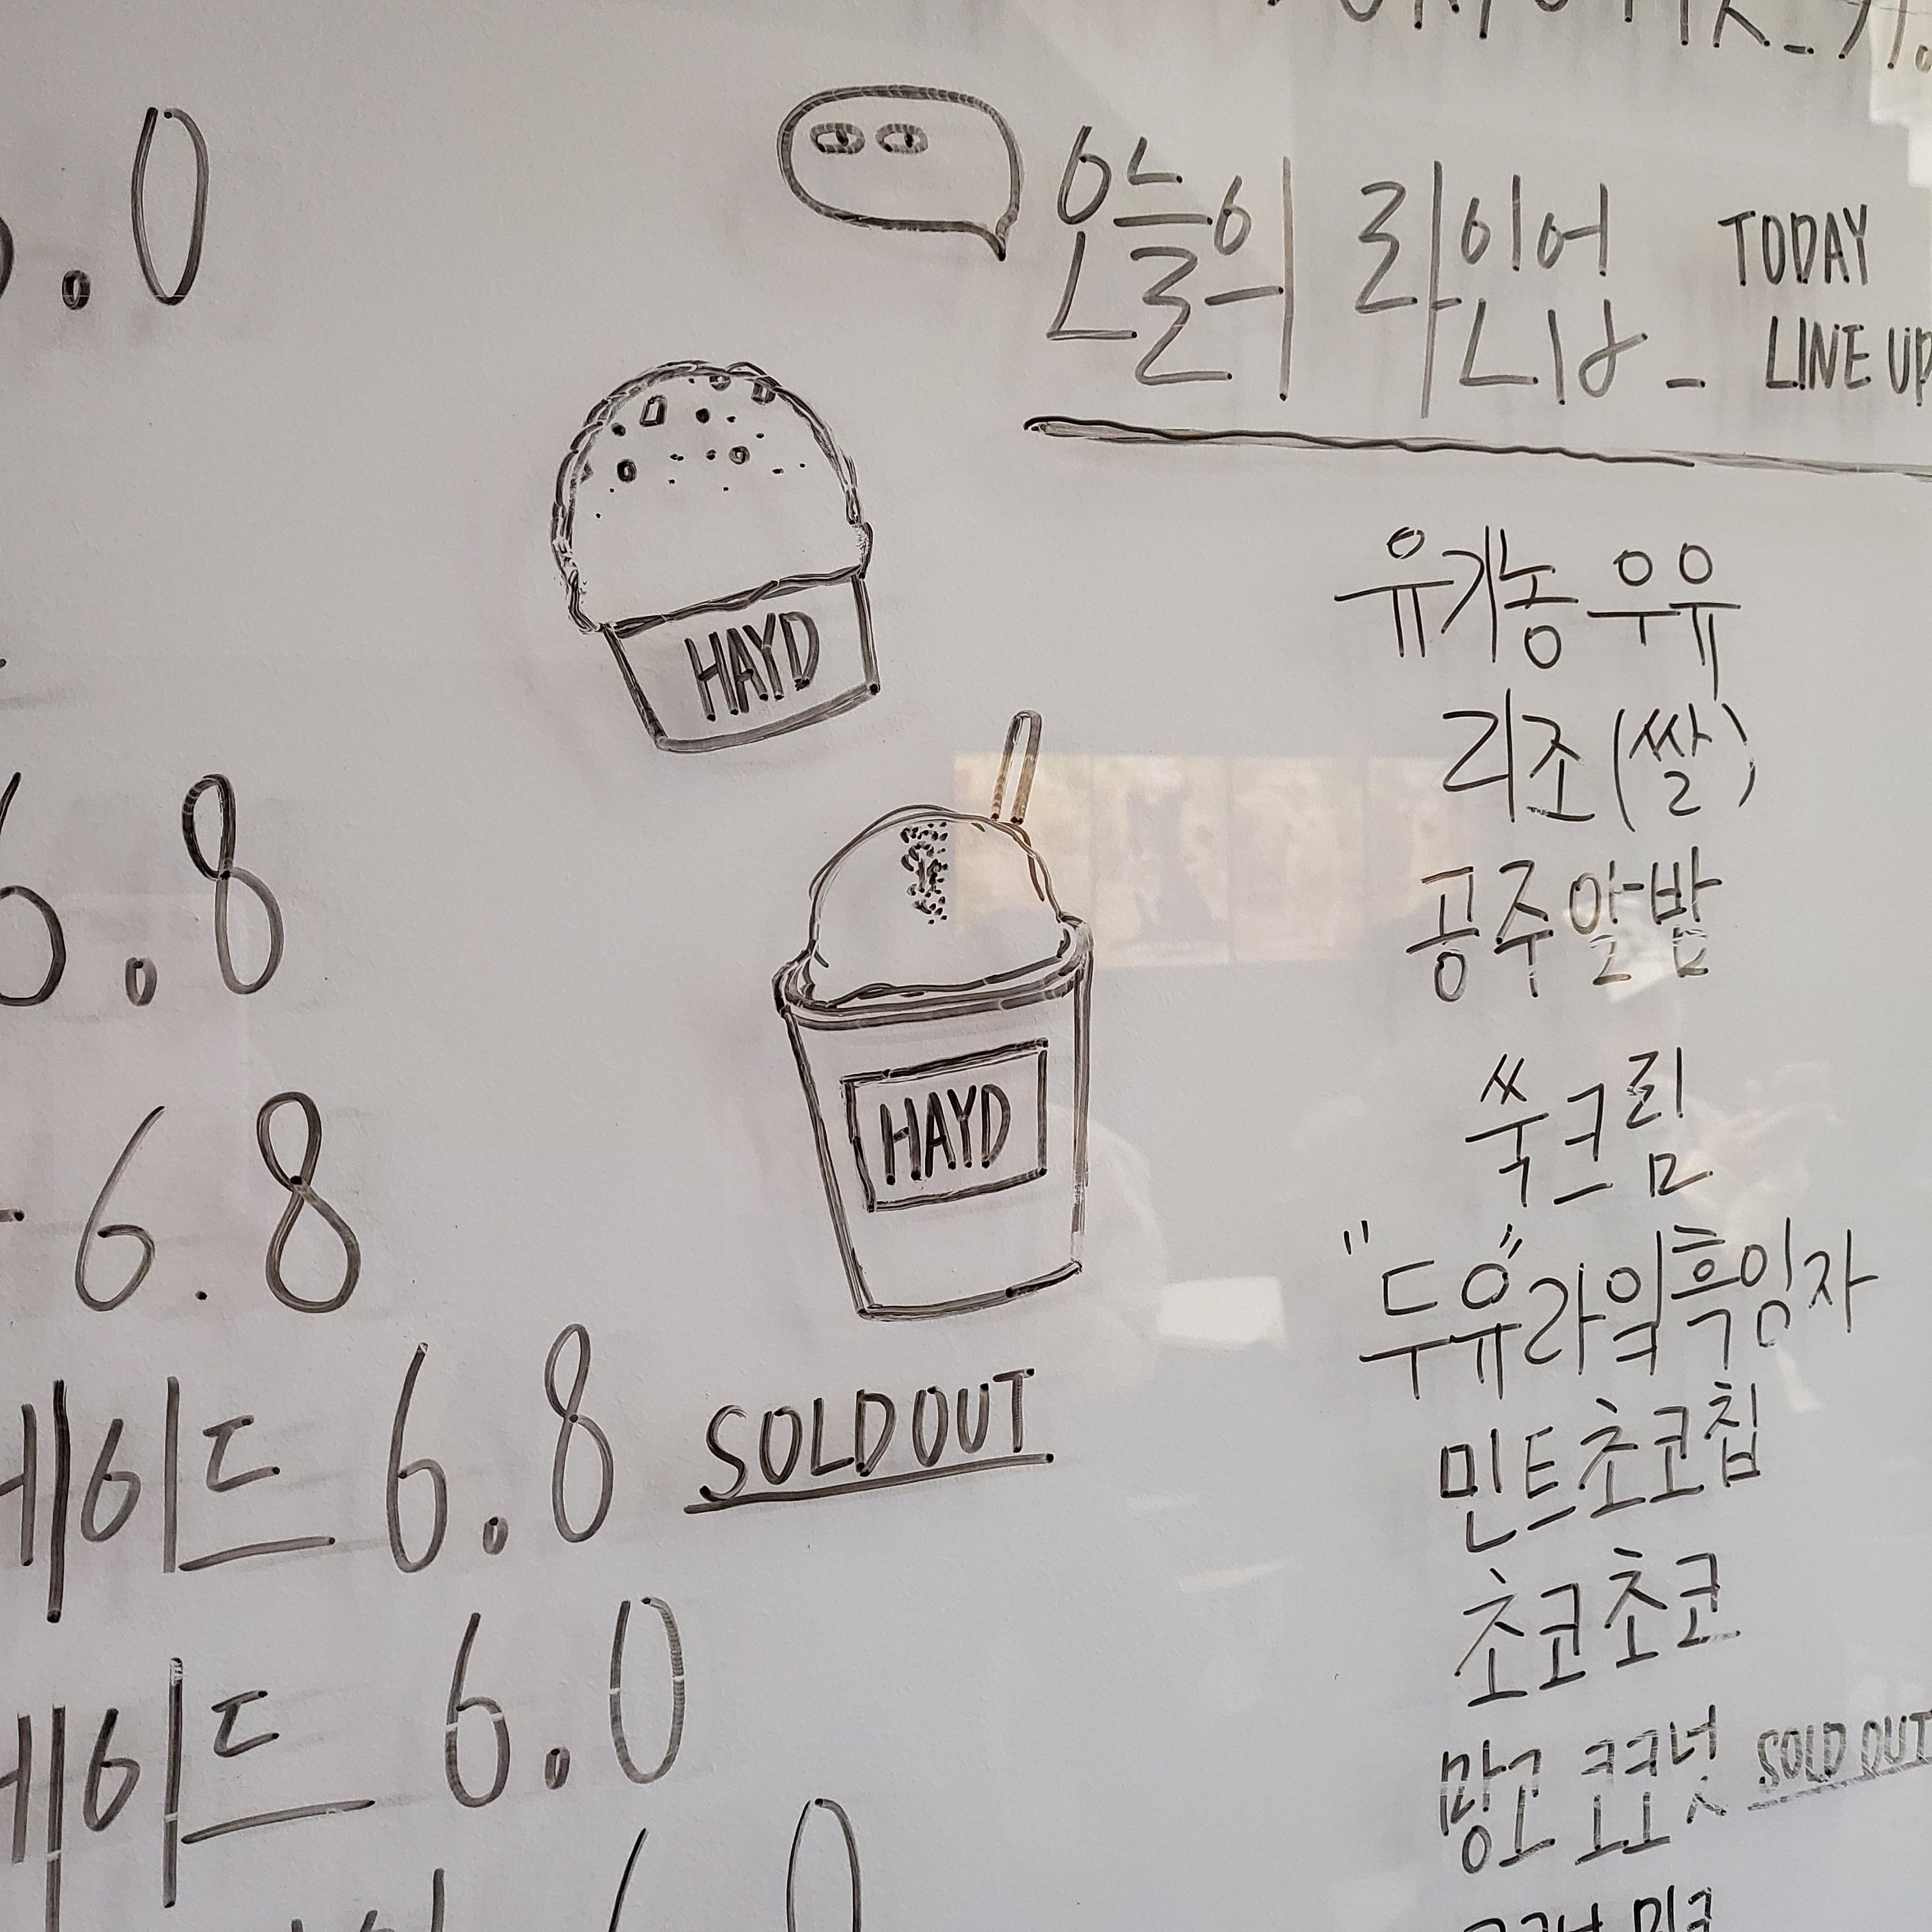 .0
오늘의 라인업_
TODAY
LINE UP
HAYD
HAYD
6.8
6.8
에이드 6.8 SOLD OUT
에이드 6.0
유기농 우유
리조(쌀)
공주알밤
쑥크림
"두유"라임흑임자
민트초코칩
초코초코
망고 코코넛 SOLD OUT